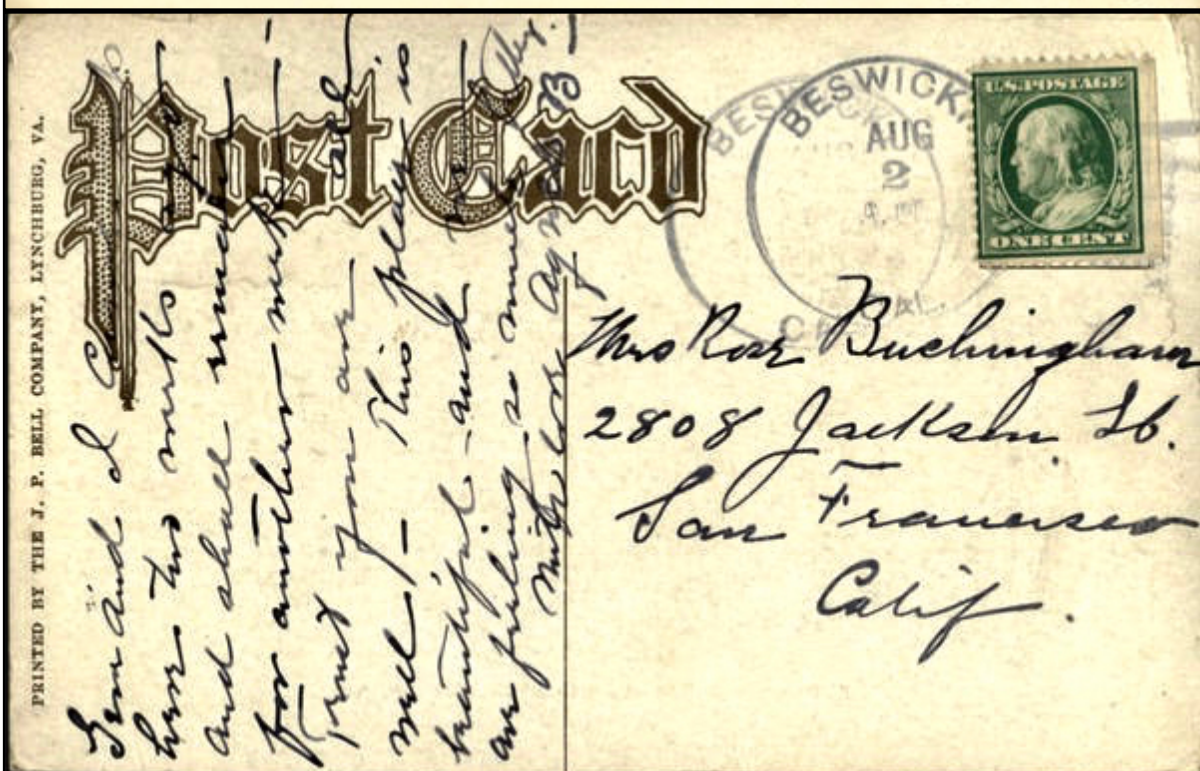 Post Card
PRINTED BY THE J. P. BELL COMPANY, LYNCHBURG, VA.
and I
here two weeks ago
and shall remain
for another week -
Trust you are all
well, - This place is
beautiful - and we
are feeling so much
With love Agnes B
BESWICK,
AUG
2
CAL.
U.S. POSTAGE
ONE CENT
Mrs Rose Buckingham
2808 Jackson St.
San Francisco
Calif.